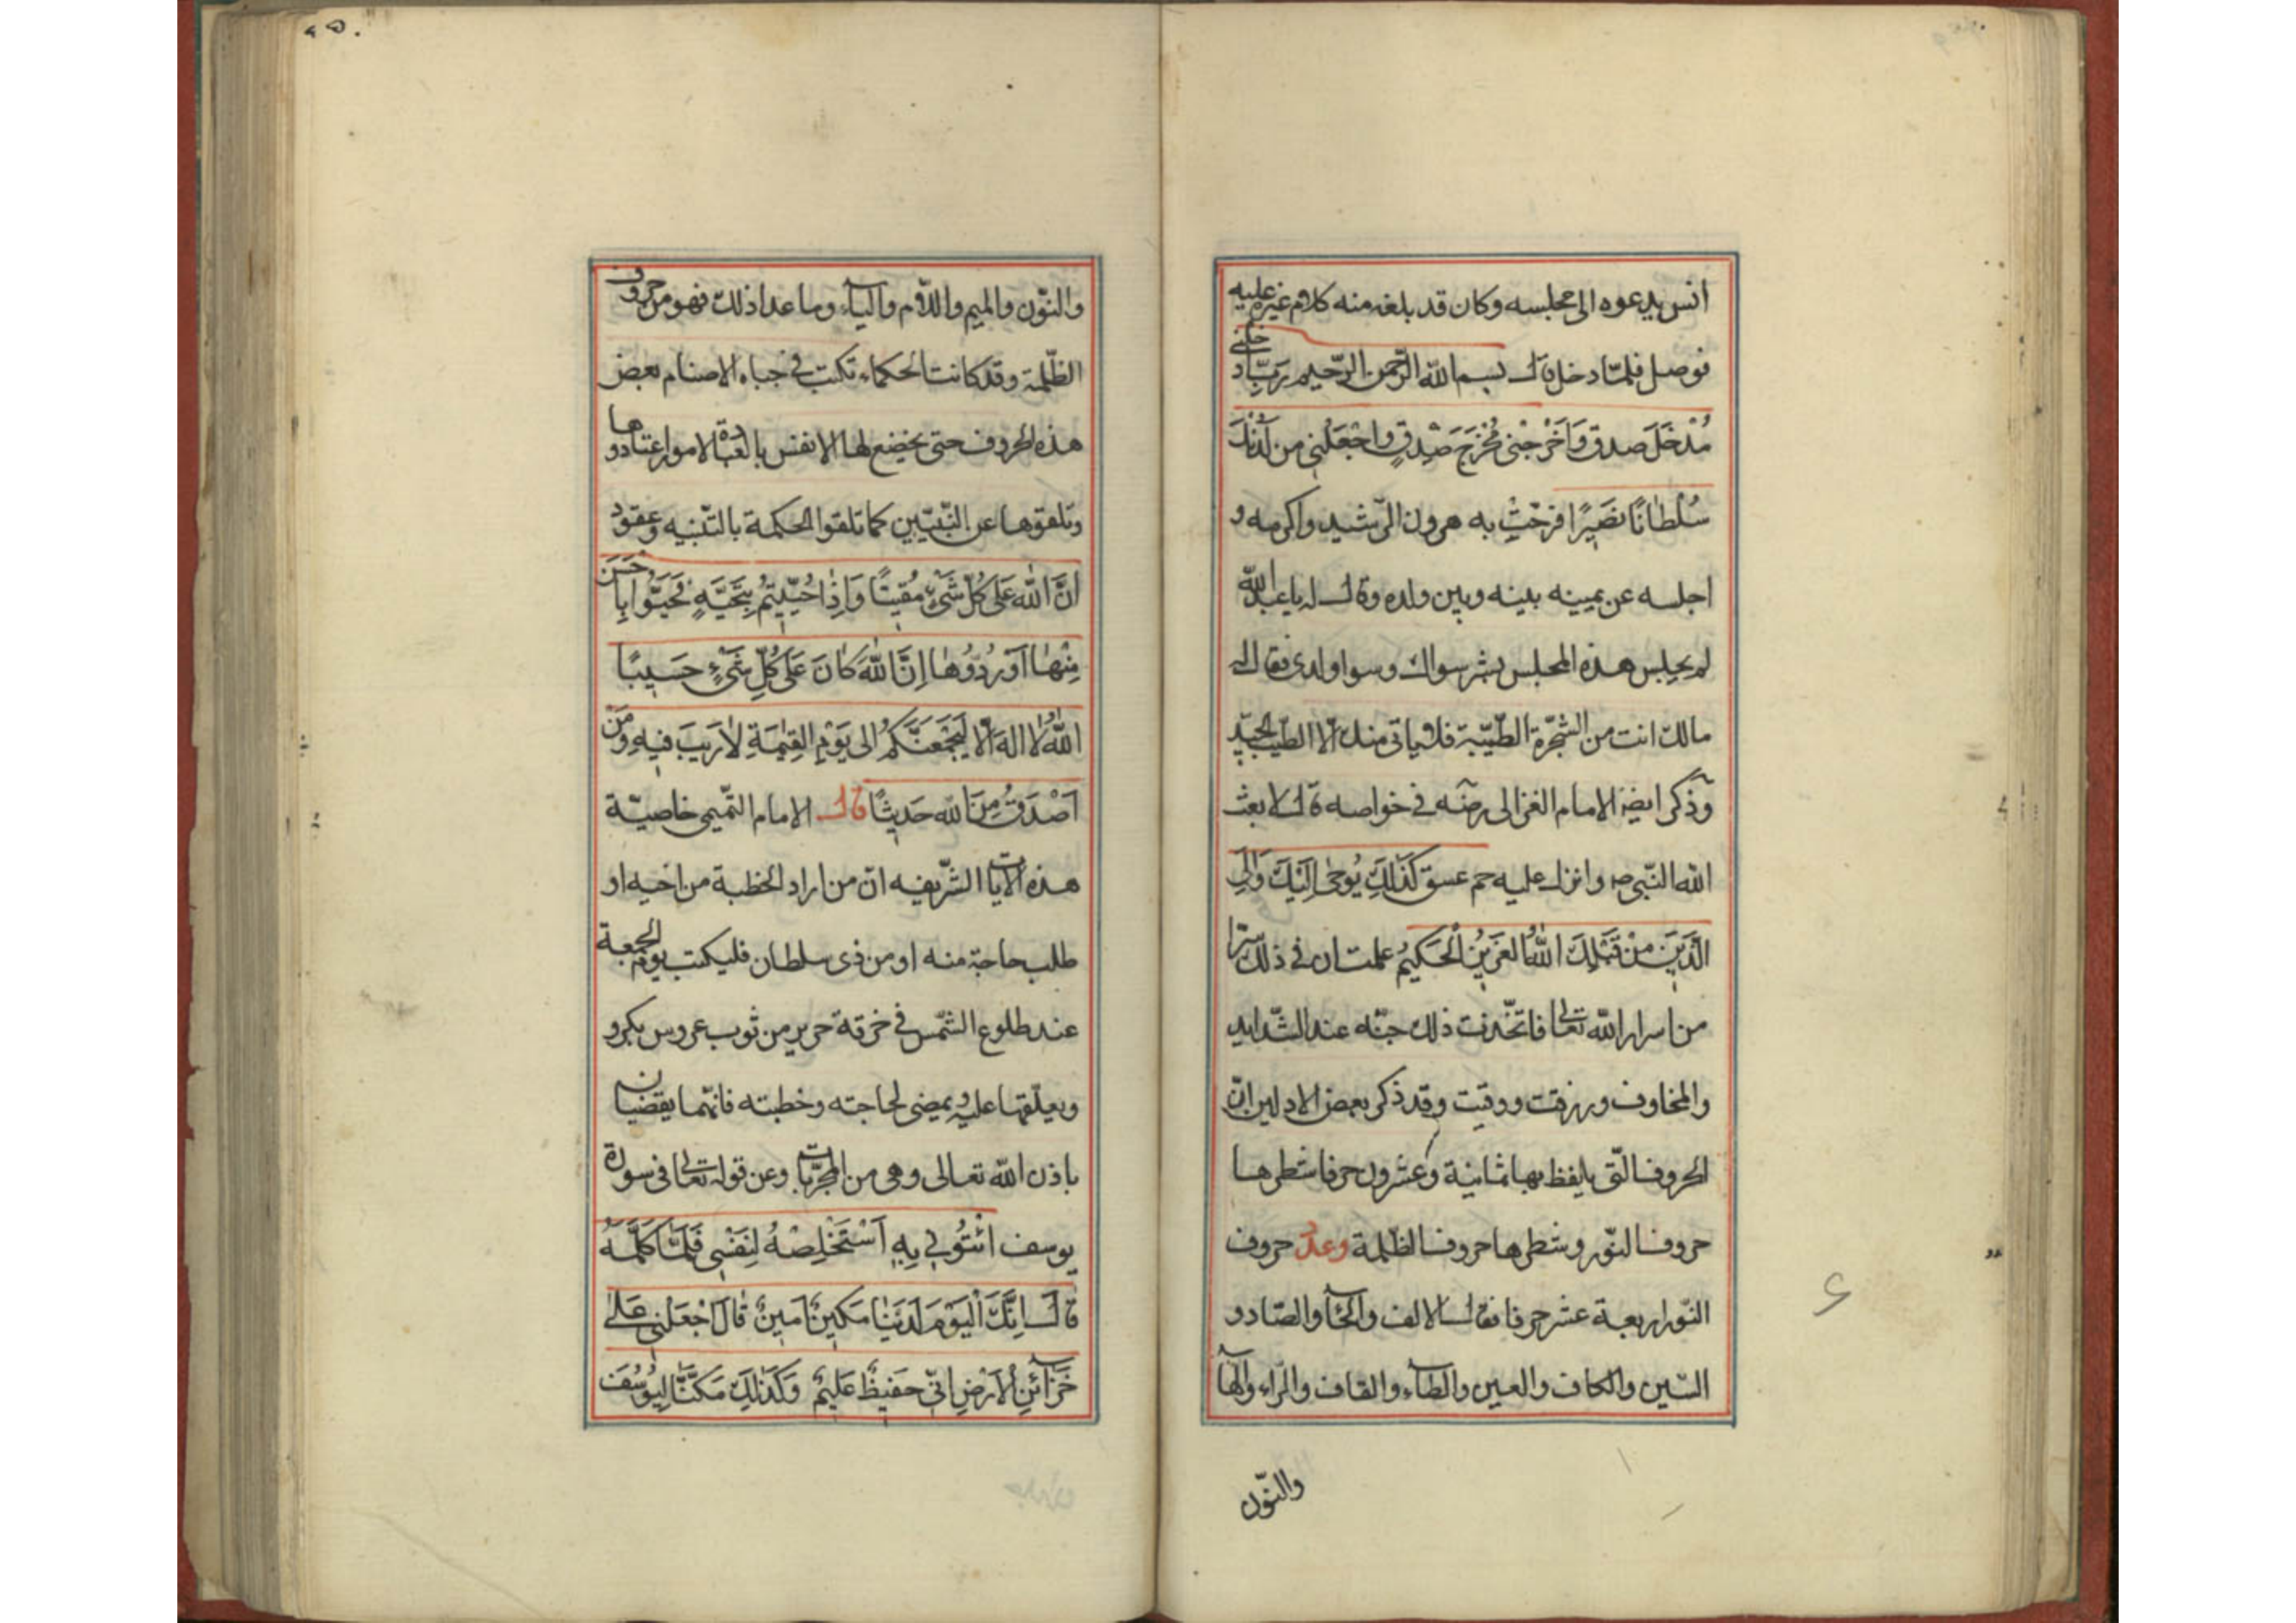 انس يدعوه الى مجلسه وكان قد بلغه منه كلام غيره عليه
فوصل فلمّا دخل قال بسم الله الرّحمن الرّحيم رَبِّ ادخلنى
مُدْخَلَ صدق وَاَخْرِجْنى مُخْرَجَ صِدْقٍ واجْعَلْنى من لَدُنْكَ
سُلْطانًا نَصيرًا فرحّب به هرون الرّشيد واكرمه و
اجلسه عن يمينه بينه وبين ولده وقال له يا عبد الله
لم يجلس هذه المجلس بشر سواك وسوا ولدى فقال له
مالك انت من الشجّرة الطّيّبة فلا ياتى منك الّا الطّيب الجيّد
وذكر ايضا الامام الغزالى رضه فى خواصه قال لا بعث
الله النّبى ص وانزل عليه حم عسق كَذٰلِكَ يُوحٰى اِلَيْكَ وَاِلَى
الَّذينَ مِنْ قَبْلِكَ اللهُ العَزيزُ الْحَكيمُ علمت ان فى ذلك سرّا
من اسرار الله تعالى فاتخّذت ذلك جنّه عند الشّدايد
والمخاوف ورزقت ووقيت وقد ذكر بعض الاولين انّ
الحروف الّتى يلفظ بها ثمانية وعشرون حرفا شطرها
حروف النّور وشطرها حروف الظّلمة وعدّ حروف
النّور اربعة عشر حرفا فقال الالف والحاۤ والصّاد و
السّين والكاف والعين والطاۤء والقاف والرّاء والهاۤ
والنّون
٢٥٠
والنّون والميم واللّام والياۤء وما عدا ذلك فهو من حروف
الظّلمة وقد كانت الحكماء تكتب فى جباه الاصنام بعض
هذه الحروف حتى يخضع لها الانفس بالعبادة الامور اعتادوها
وتلقوها عن النّبيّين كما تلقوا الحكمة بالتّنبيه وعقود
اِنَّ اللهَ عَلى كُلِّ شَىْءٍ مُقيتًا وَاِذا حُيّيتُمْ بِتَحِيَّةٍ فَحَيُّوا بِاَحْسَنَ
مِنْها اَوْ رُدُّوُها اِنَّ اللهَ كانَ عَلى كُلِّ شَىْءٍ حَسيبًا
اللهُ لا اِلهَ اِلّا لَيَجْمَعَنَّكُمْ الى يَوْمِ القِيٰمَةِ لارَيبَ فيهِ وَمَنْ
اَصْدَقُ مِنَ اللهِ حَديثًا قال الامام التّميمى خاصيّة
هذه الايات الشّريفه انّ من اراد الخطبة من اخيه او
طلب حاجة منه او من ذى سلطان فليكتب يوم الجمعة
عند طلوع الشّمس فى خرقة حرير من ثوب عروس بكر و
ويعلّقها عليه ويمضى لحاجته وخطبته فانّهما يقضيان
باذن الله تعالى وهى من المجرّبات وعن قوله تعالى فى سورة
يوسف ائْتُونى بِهِ اَسْتَخْلِصْهُ لِنَفْسى فَلَمّا كَلَّمَهُ
قالَ اِنَّكَ الْيَوْمَ لَدَيْنا مَكينٌ اَمينٌ قالَ اجْعَلْنى عَلى
خَزاۤئِنِ الاَرْضِ اِنّى حَفيظٌ عَليمٌ وَكَذٰلِكَ مَكَّنّا لِيُوسُفَ